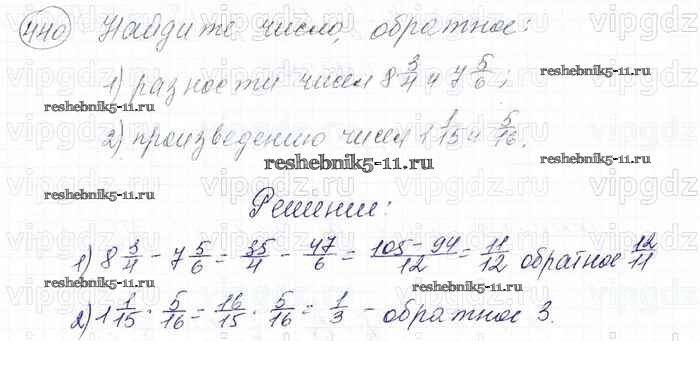 440 Найдите число, обратное:
1) разности чисел 8 3/4 и 7 5/6;
2) произведению чисел 1 1/15 и 5/16.
Решение:
1) 8 3/4 - 7 5/6 = 35/4 - 47/6 = 105-94/12 = 11/12 обратное 12/11
2) 1 1/15 · 5/16 = 16/15 · 5/16 = 1/3 - обратное 3.
reshebnik5-11.ru
reshebnik5-11.ru
reshebnik5-11.ru
reshebnik5-11.ru
reshebnik5-11.ru
vipgdz
vipgdz
vipgdz
vipgdz